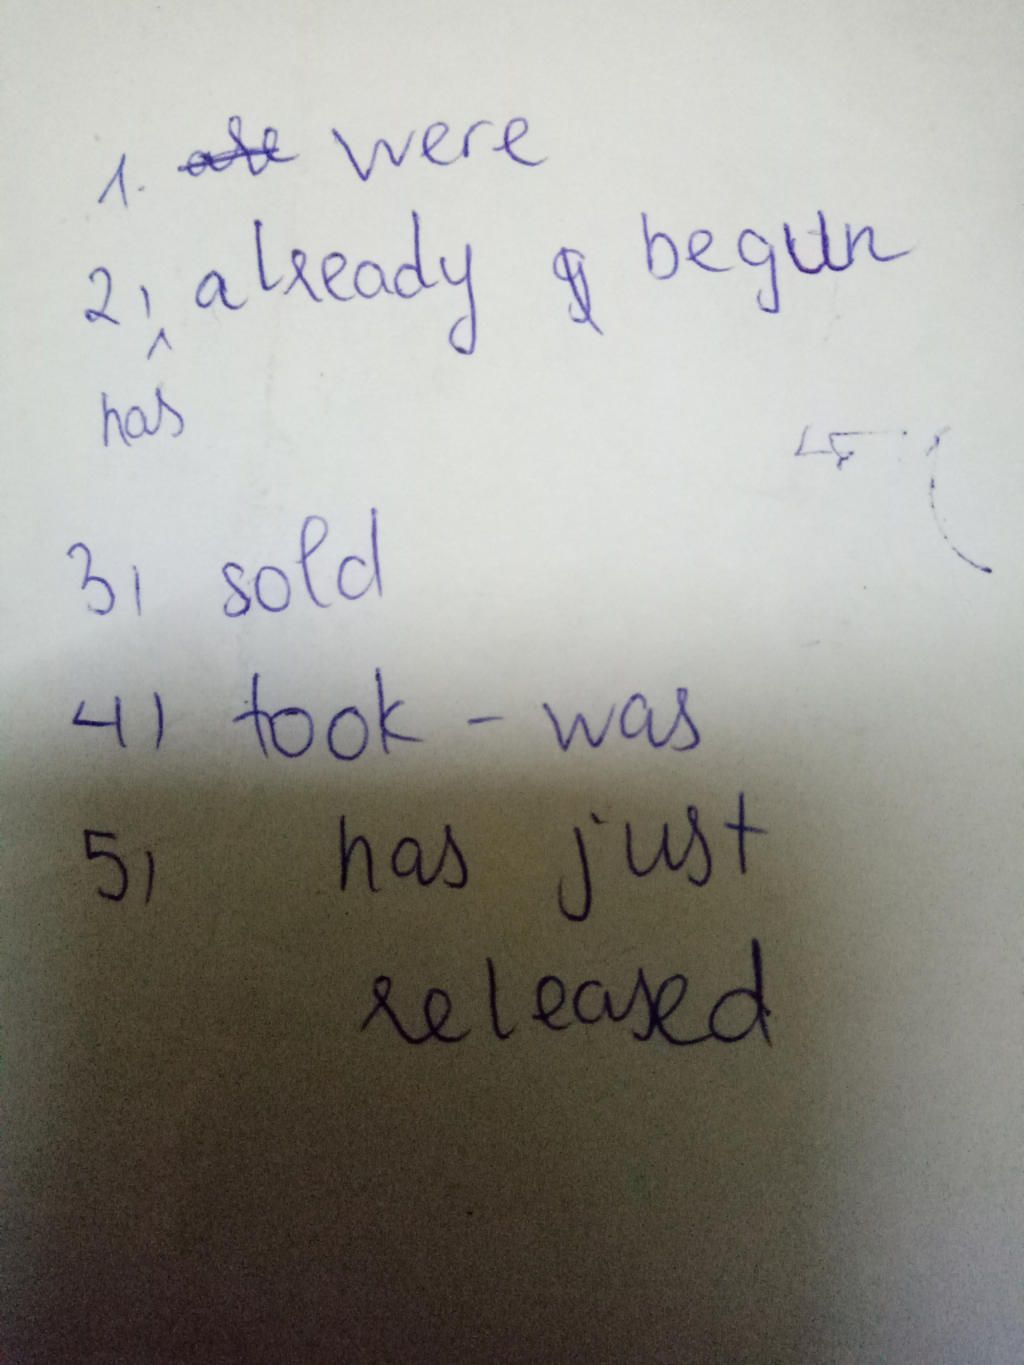 1. are were
2) already begun
has
3) sold
4) took - was
5) has just
released